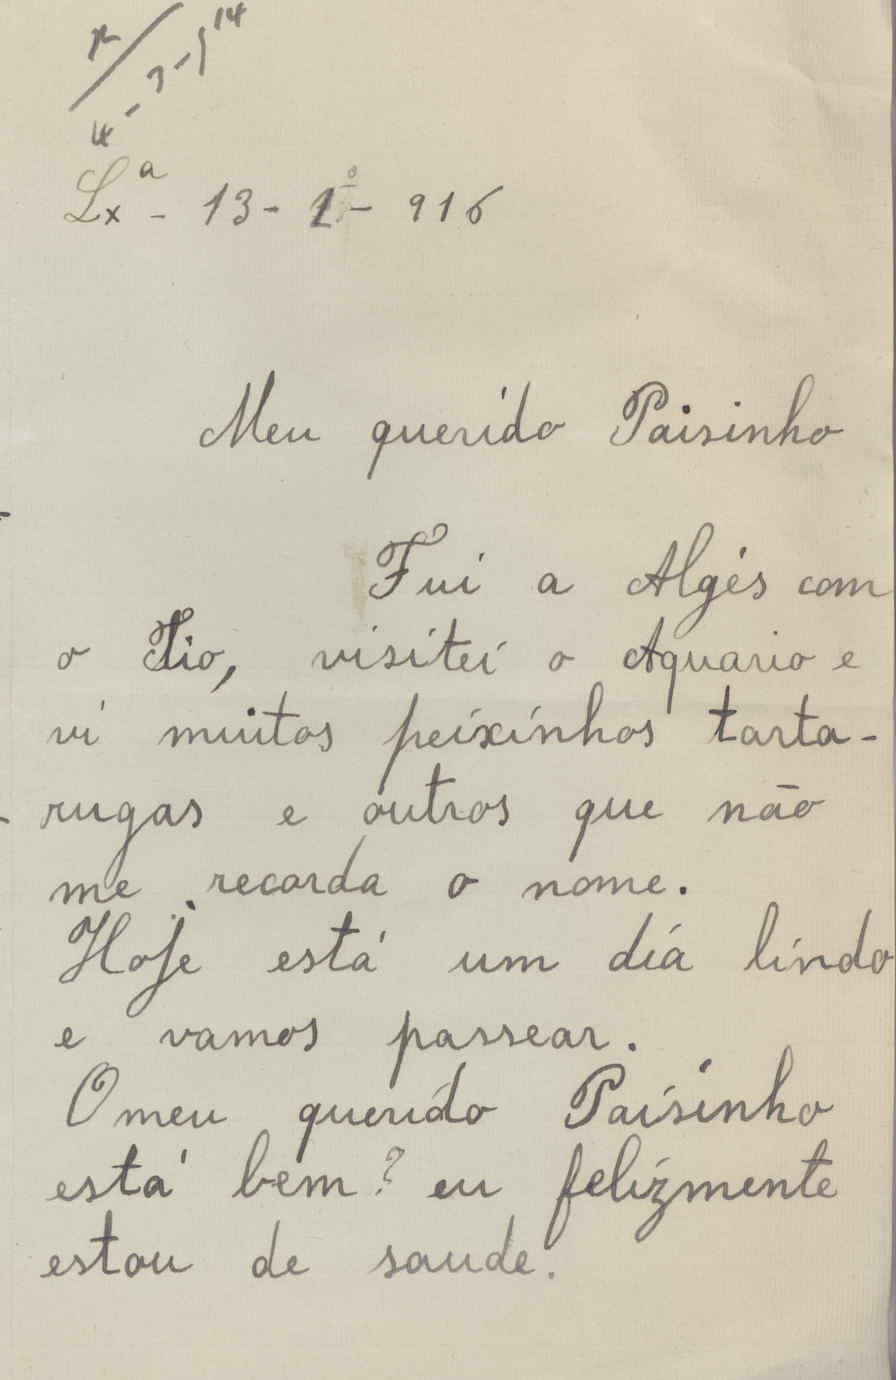 Lxª - 13 - 1º - 916
Meu querido Paisinho
Fui a Algés com
o Tio, visitei o Aquario e
vi muitos peixinhos tarta-
rugas e outros que não
me recorda o nome.
Hoje está um dia lindo
e vamos passear.
O meu querido Paisinho
está bem? eu felizmente
estou de saude.